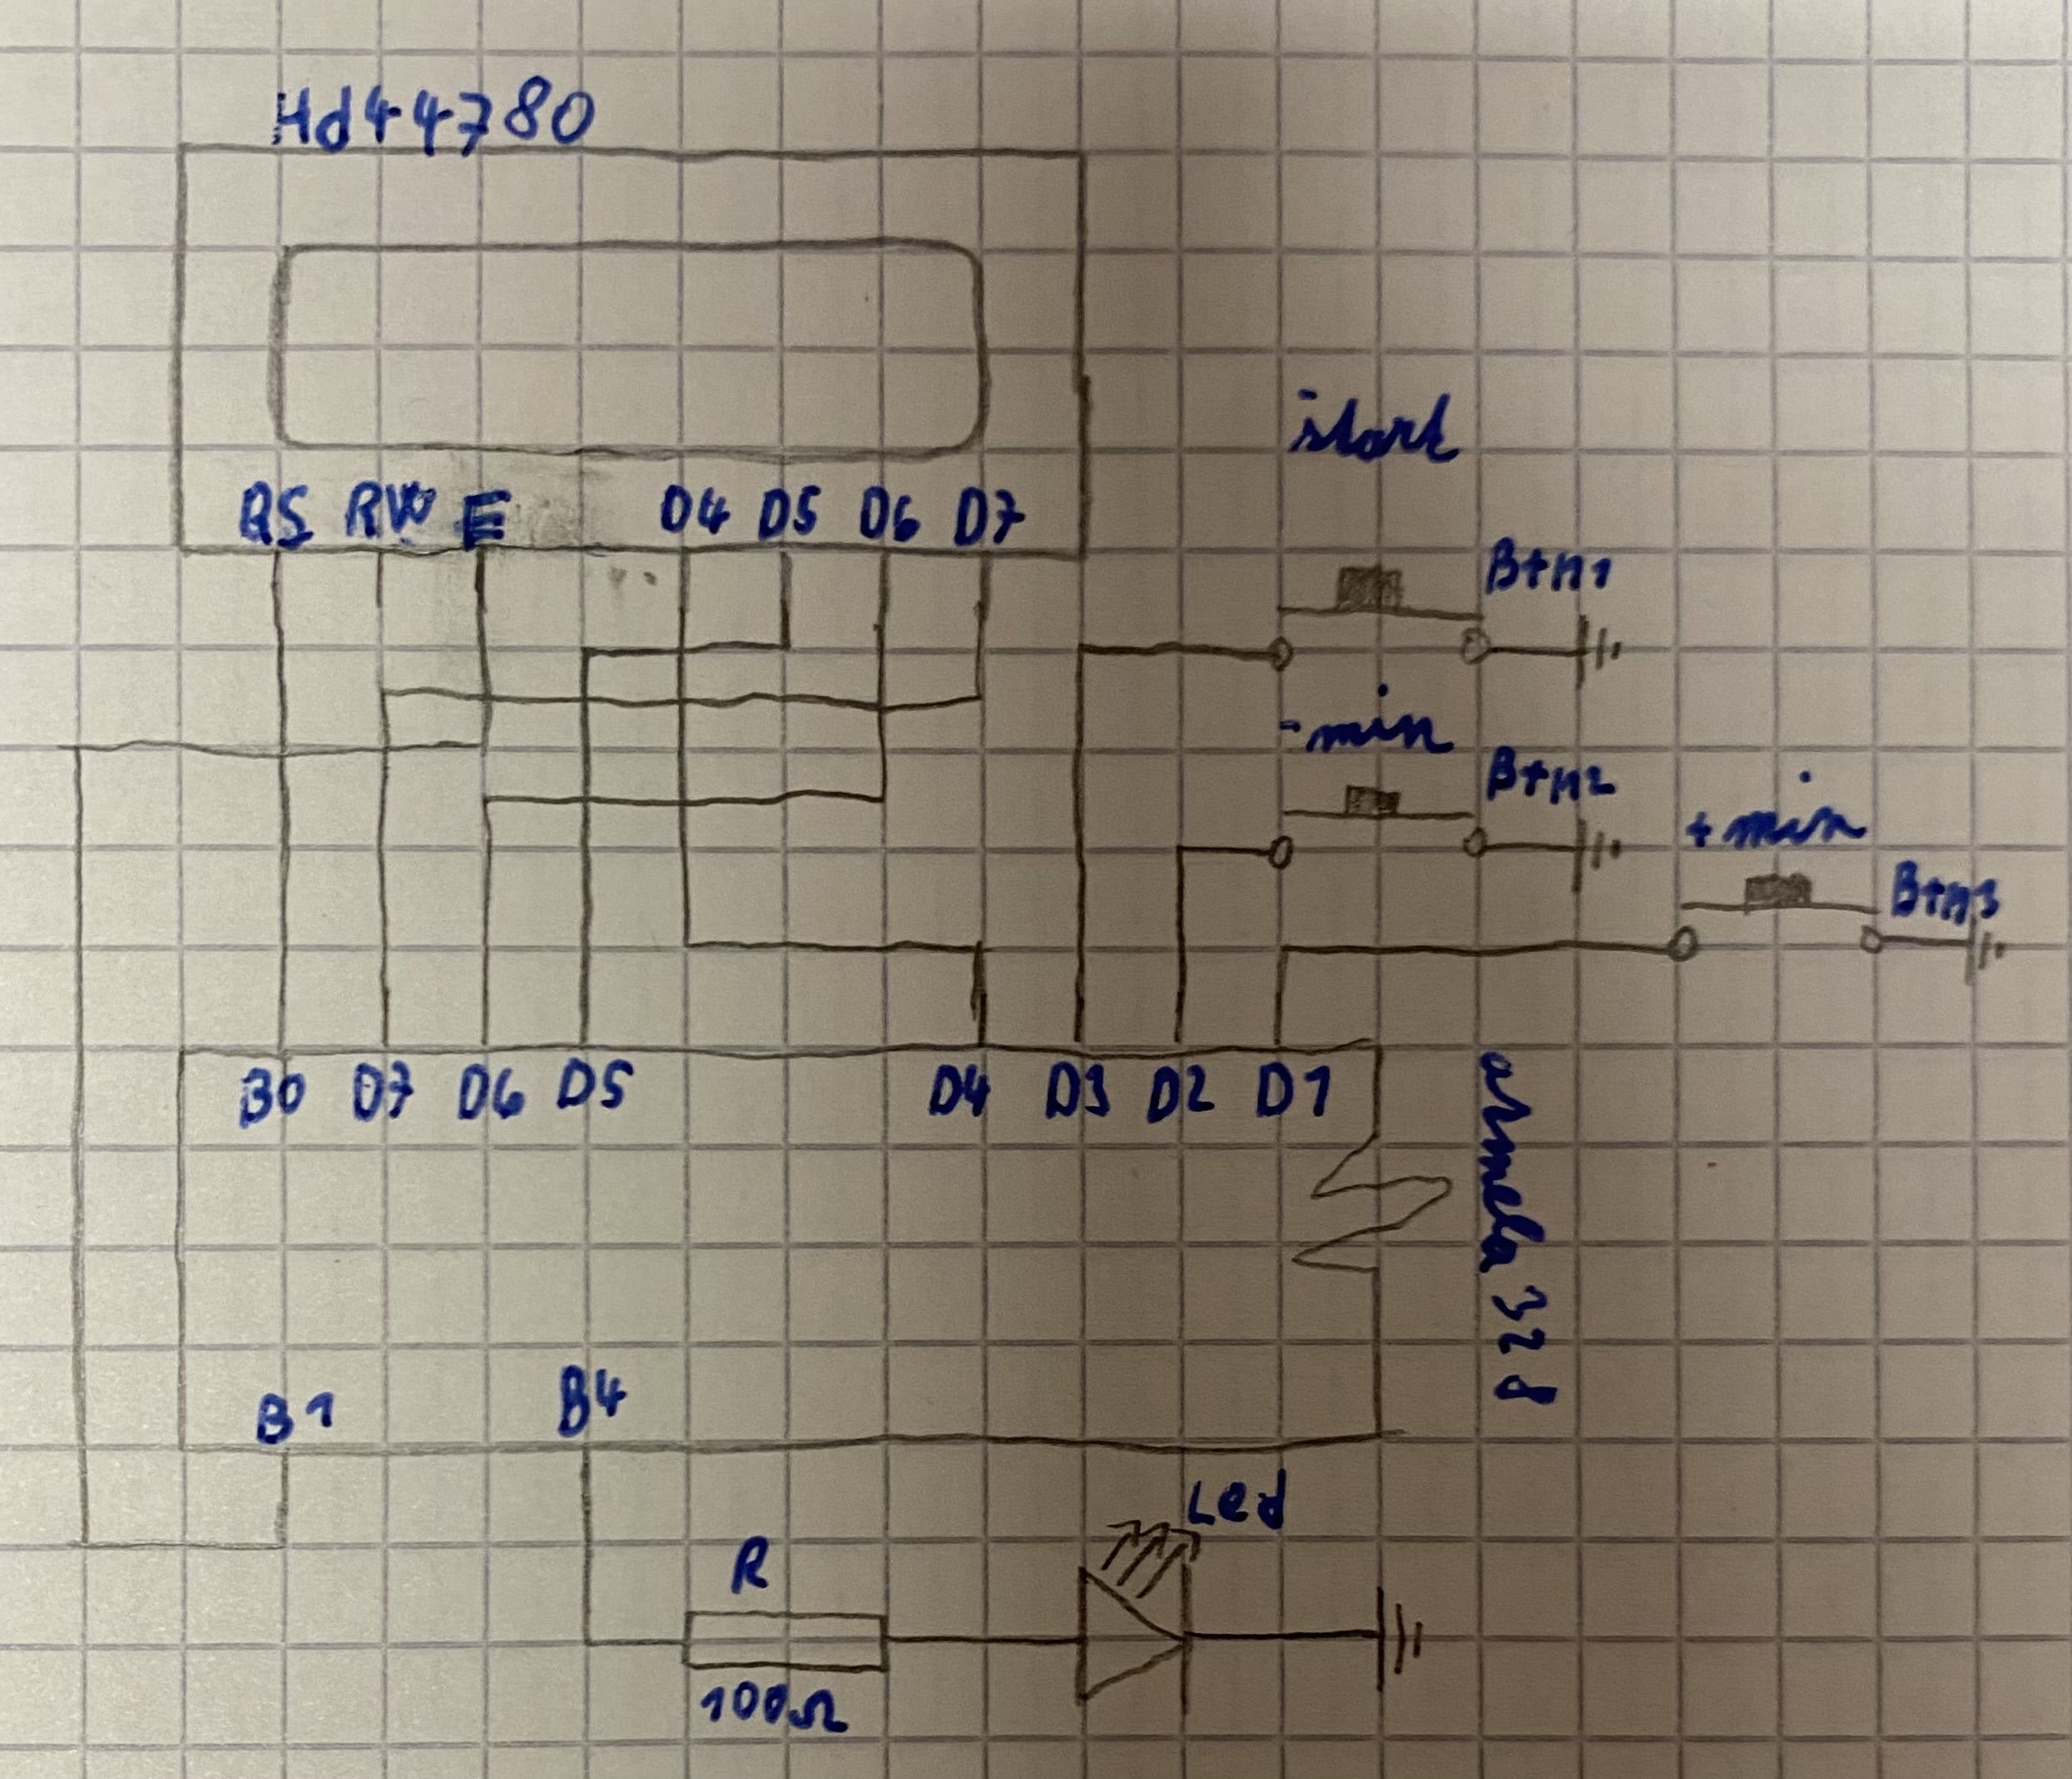 Hd44780
RS RW E D4 D5 D6 D7
start
Btn1
-min
Btn2
+min
Btn3
B0 D7 D6 D5 D4 D3 D2 D1
B1 B4
Led
R
100Ω